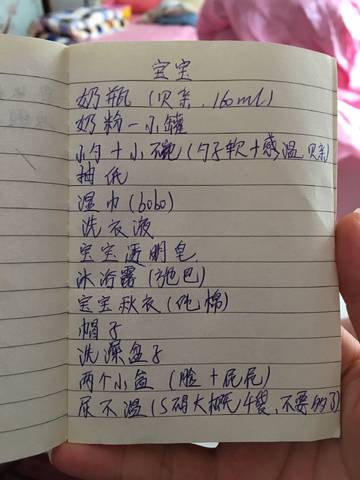 宝宝
奶瓶 (贝亲.160ml)
奶粉一小罐
小勺+小碗 (勺子软+感温 贝亲)
抽纸
湿巾 (bobo)
洗衣液
宝宝透明皂.
沐浴露 (强巴)
宝宝秋衣 (纯棉)
帽子
洗澡盆子
两个小盆 (脸+屁屁)
尿不湿 (S码大概4包,不要的了)